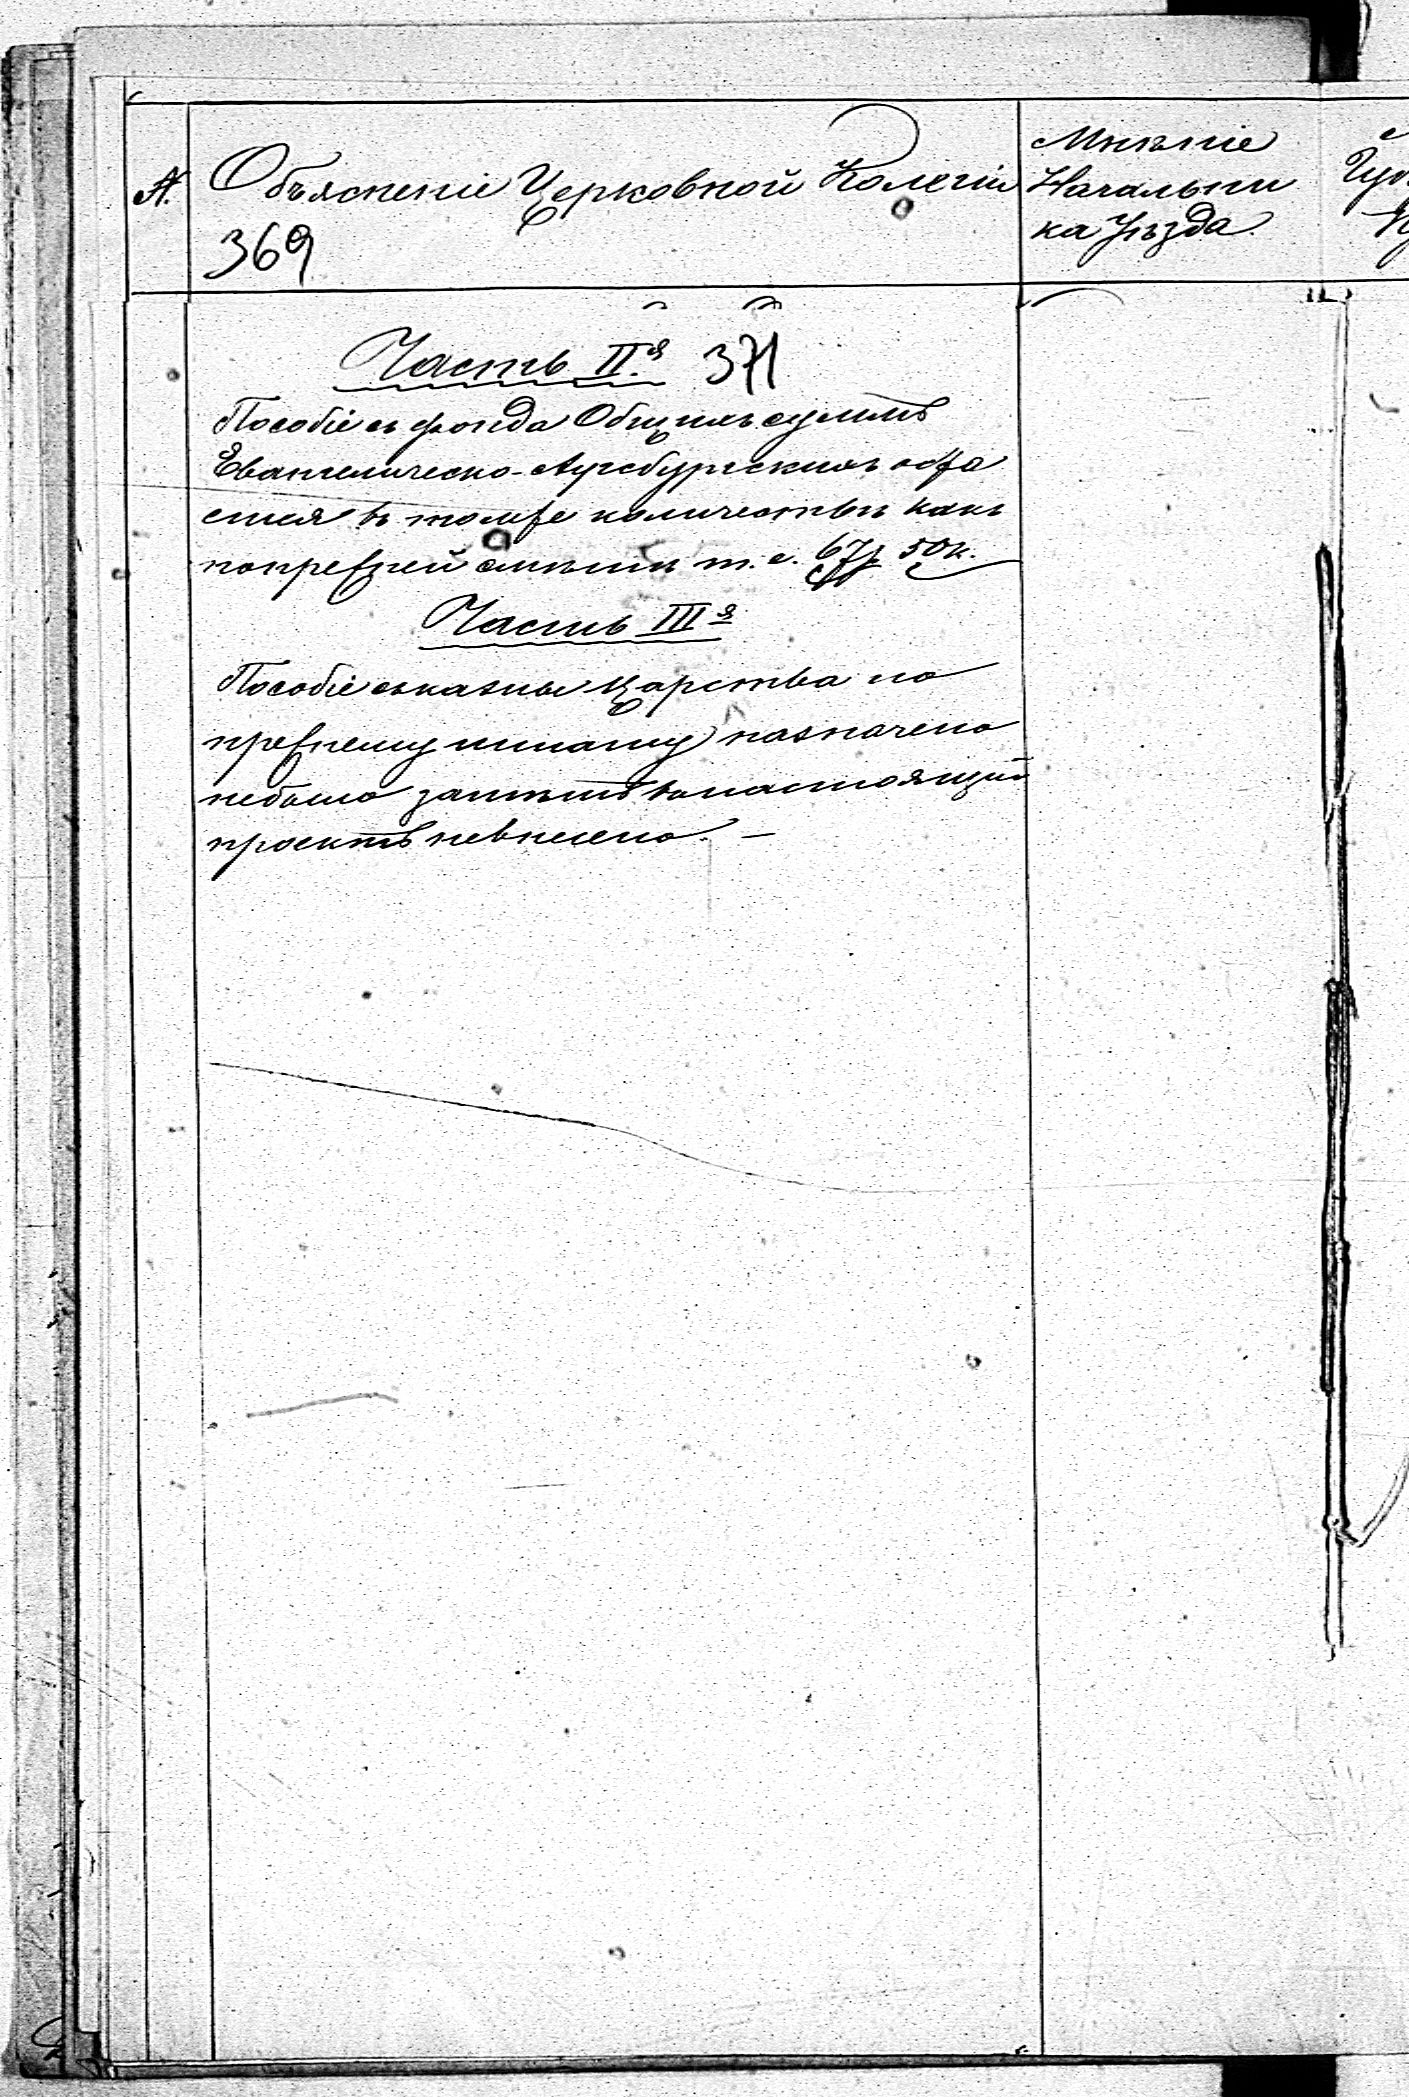 А.
Объясненіе Церковной Колегіи
369
Мнѣніе
Начальни
ка Уѣзда
Часть II.я 371
Пособіе съ фонда Общихъ суммъ
Евангелическо-Аугсбургскихъ оста
ется въ томже количествѣ какъ
попрежней смѣтѣ т. е. 67р 50к.
Часть IIIя
Пособіе съ казны Царства по
прежнему штату назначено
небыло затѣмъ внастоящій
проектъ невнесено. —